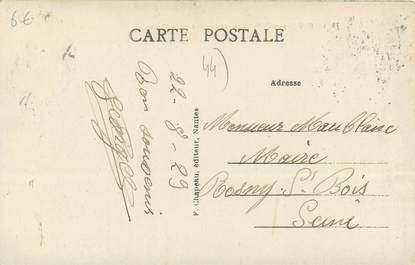 6€
CARTE POSTALE
44
Adresse
22-8-29
Bon souvenir
Georges
F. Chapeau, éditeur, Nantes
Monsieur Maublanc
Maire
Rosny-S-Bois
Seine